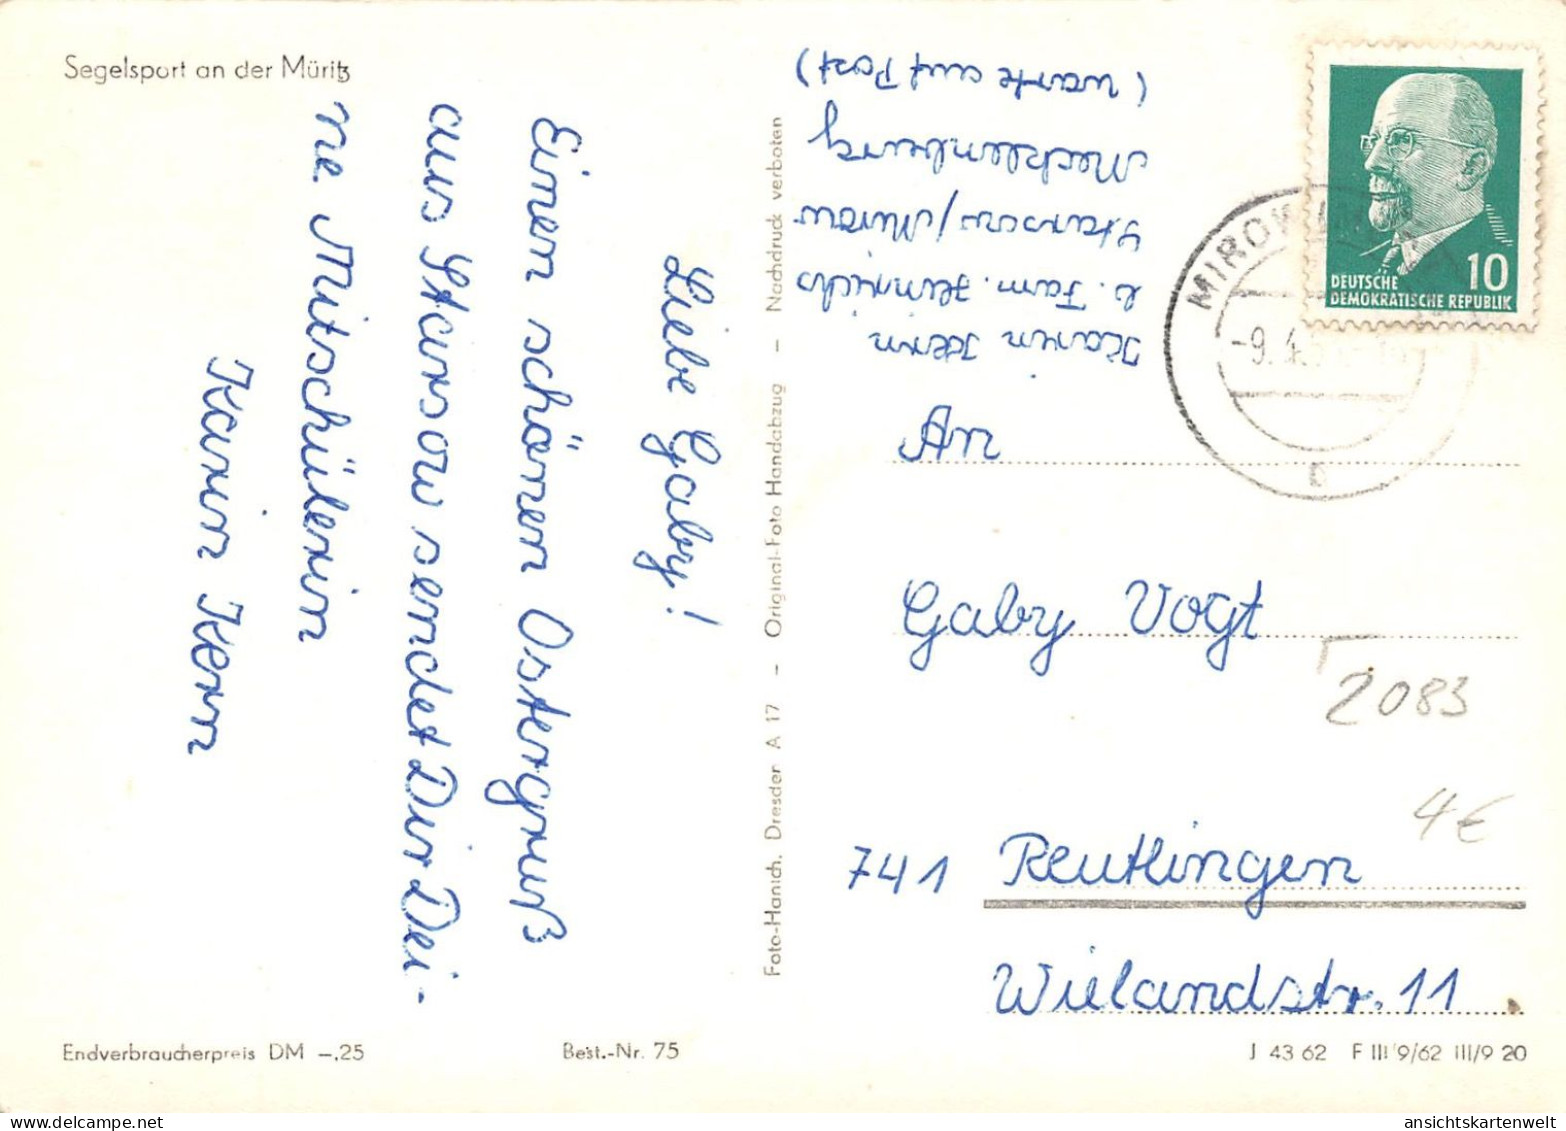 Segelsport an der Müritz
Liebe Gaby!
Einen schönen Ostergruß
aus Starsow sendet Dir Dei-
ne Mitschülerin
Karin Kern
Endverbraucherpreis DM –,25
Best.-Nr. 75
Foto-Hanich, Dresden A 17 – Original-Foto Handabzug – Nachdruck verboten
Karin Kern
b. Fam. Hinnichs
Starsow/Mirow
Mecklenburg
(warte auf Post)
DEUTSCHE
DEMOKRATISCHE REPUBLIK
10
MIROW
-9.4.
An
Gaby Vogt
2083
4€
741 Reutlingen
Wielandstr. 11
J 43 62 F III 9/62 III/9 20
ansichtskartenwelt